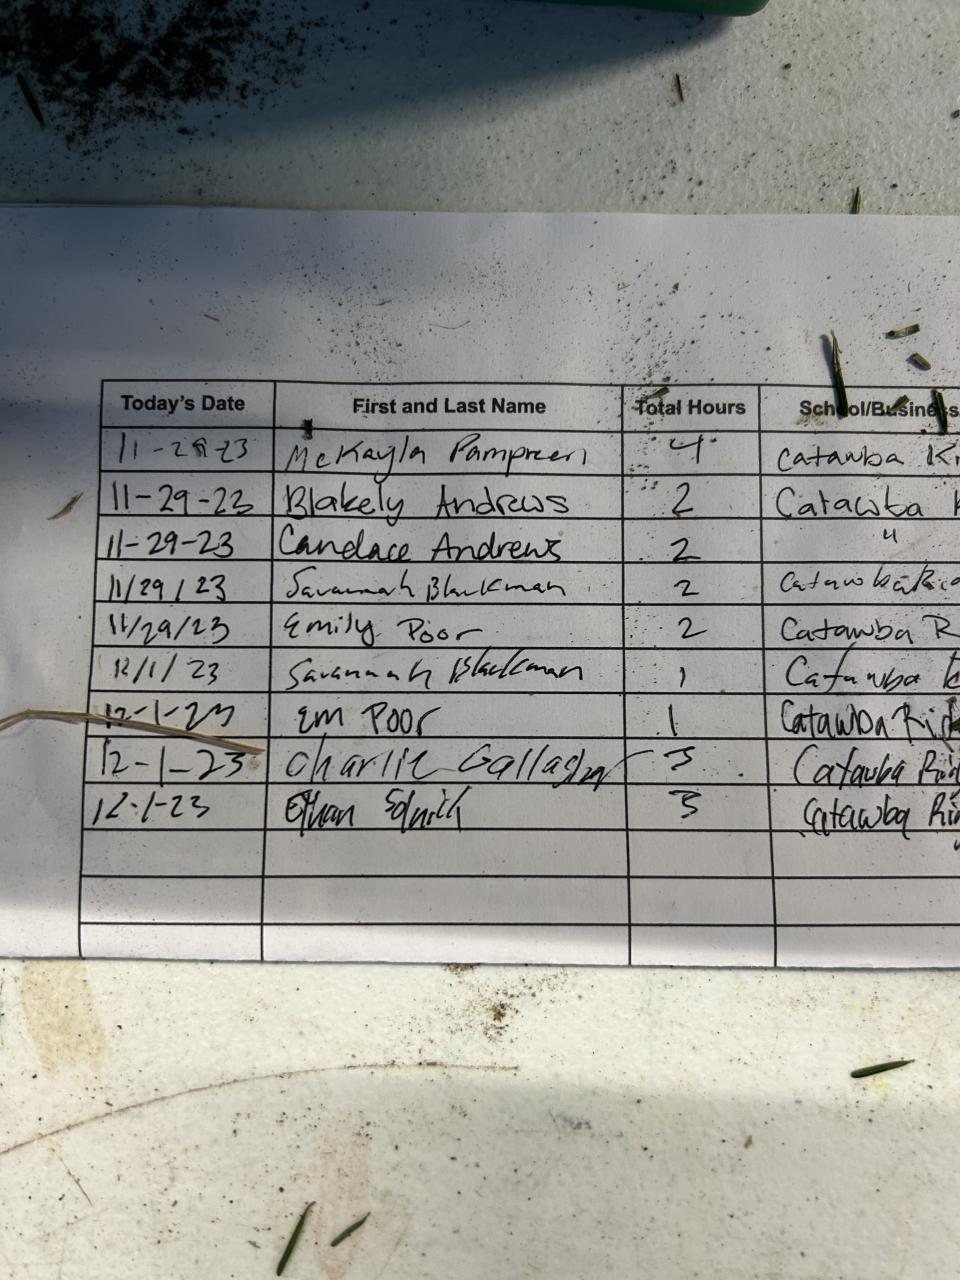 Today's Date First and Last Name Total Hours School/Business
11-29-23 McKayla Pampreen 4 Catawba Ri
11-29-23 Blakely Andrews 2 Catawba R
11-29-23 Candace Andrews 2 "
11/29/23 Savannah Blackman 2 Catawba Rid
11/29/23 Emily Poor 2 Catawba R
12/1/23 Savannah Blackman 1 Catawba
12-1-23 Em Poor 1 Catawba Rid
12-1-23 Charlie Gallagher 3 Catawba Rid
12-1-23 Ethan 3 Catawba Rid